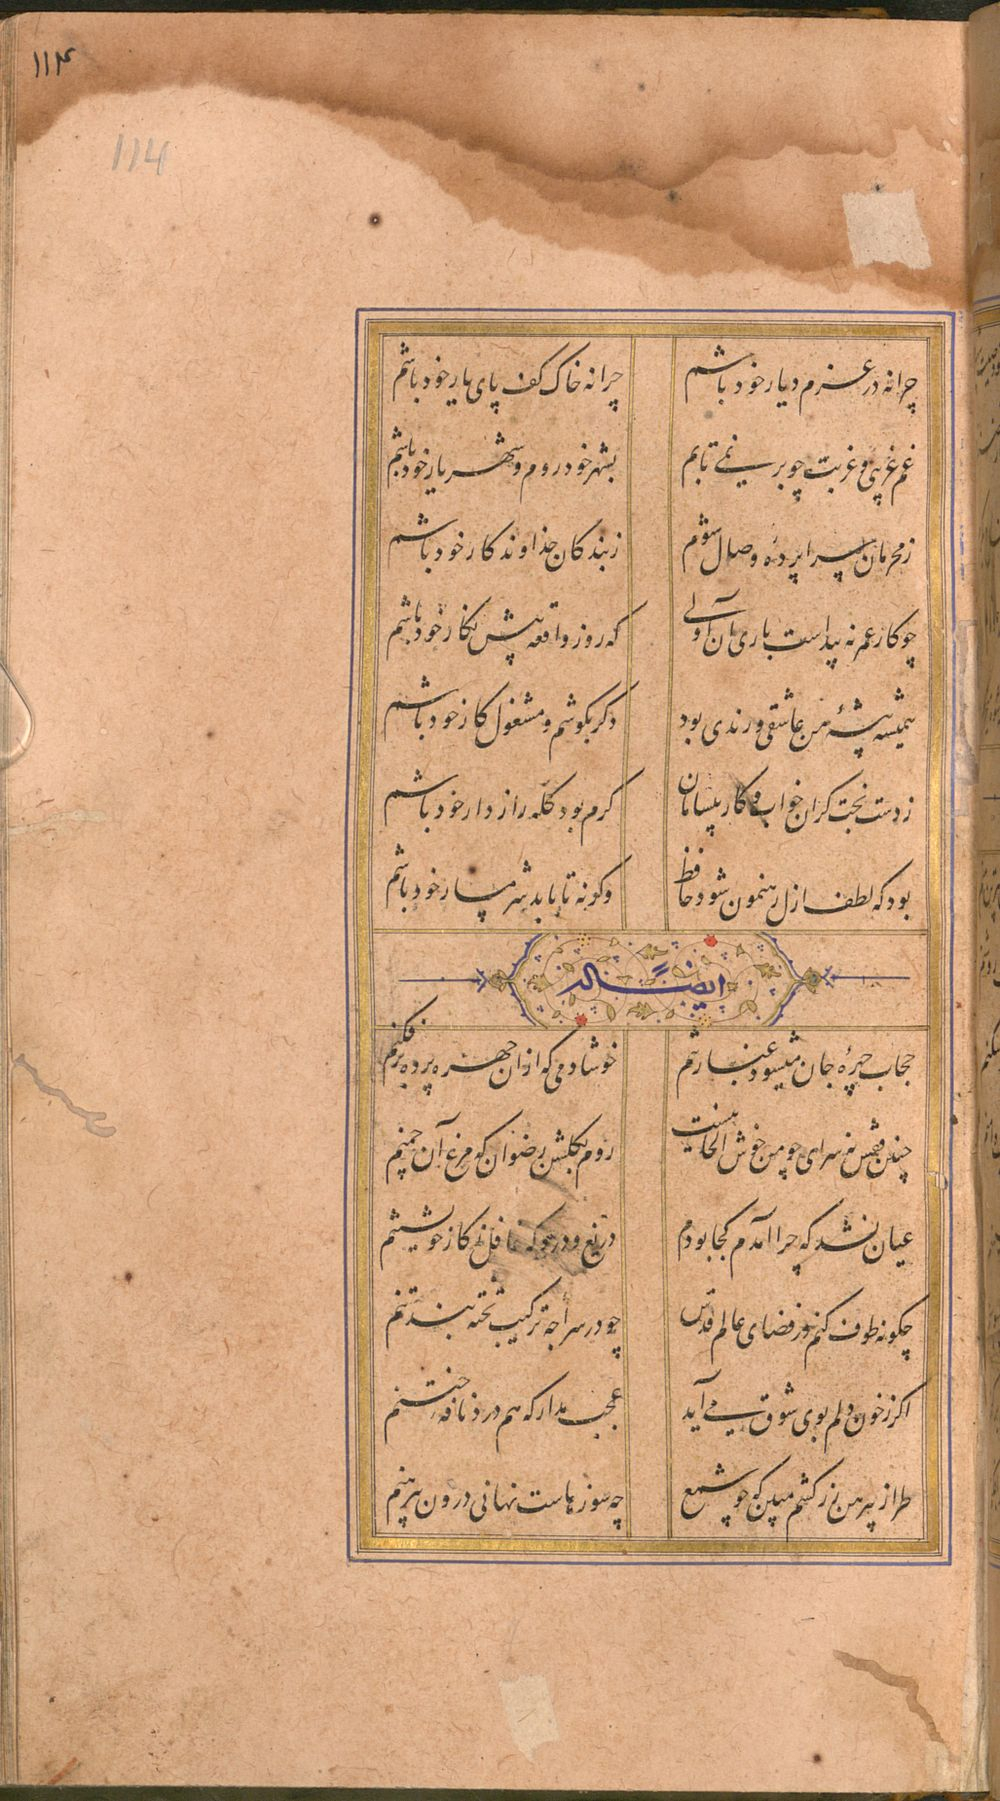 ۱۱۴
114
چرا نه در عزم دیار خود باشم چرا نه خاک کف پای یار خود باشم
غم غریبی و غربت چو بر نمی تابم بشهر خود روم و شهریار خود باشم
ز محرمان سراپرده وصال شوم ز بندکان خداوندکار خود باشم
چو کار عمر نه پیداست باری آن اولی که روز واقعه پیش نکار خود باشم
همیشه پیشهٔ من عاشقی و رندی بود دکر بکوشم و مشغول کار خود باشم
ز دست بخت کران خواب و کار بیسامان کرم بود کله راز دار خود باشم
بود که لطف ازل رهنمون شود حافظ وکرنه تا بابد شرمسار خود باشم
ایضاً له
حجاب چهرهٔ جان میشود غبار تنم خوشا دمی که ازان چهره پرده بر فکنم
چنین قفس نه سزای چو من خوش الحانیست روم بکلشن رضوان که مرغ آن چمنم
عیان نشد که چرا آمدم کجا بودم دریغ و درد که غافل ز کار خویشتنم
چکونه طوف کنم در فضای عالم قدس چو در سراچه ترکیب تخته بند تنم
اکر ز خون دلم بوی شوق می آید عجب مدار که هم درد نافه ختنم
طراز پیرهن زرکشم مبین که چو شمع چه سوزهاست نهانی درون پیرهنم